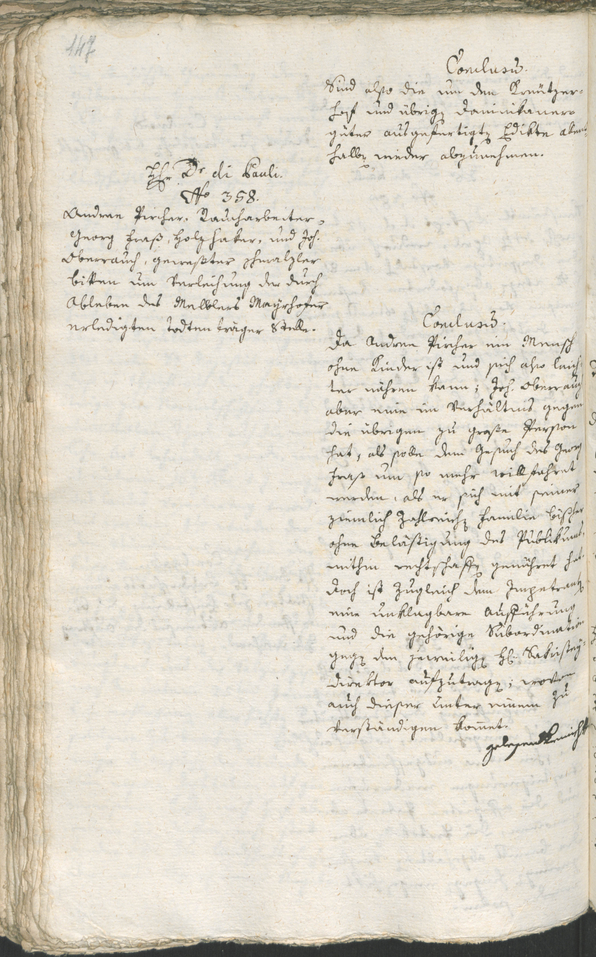 147
Conclusum.
Sind also die um den Kreutzer-
hof und übrige Dominikaner-
güter ausgefertigte Edikte allent-
halben wieder abzunehmen.
H. Dr. di Pauli.
No 358.
Andree Pircher, Taucharbeiter,
Georg Graß, Holzhaker, und Joh.
Oberrauch, gewester Schmalzler
bitten um Verleihung der durch
Ableben des Melblers Mayrhofer
erledigten Todtenträger Stelle.
Conclusum
Da Andree Pircher ein Mensch
ohne Kinder ist und sich also leich-
ter nähren kann; Joh. Oberrauch
aber eine im Verhältnis gegen
die übrigen zu große Person
hat, als solle dem Gesuch des Georg
Graß um so mehr willfahret
werden, als er sich mit seiner
ziemlich zahlreichen Familie bisher
ohne Belästigung des Publikums,
mithin rechtschaffen genähret hat.
Doch ist zugleich dem Impetranten
eine unklagbare Aufführung
und die gehörige Subordination
gegen den jeweiligen H. Sakristey-
direktor aufzutragen; wovon
auch dieser unter einem zu
verständigen kommt.